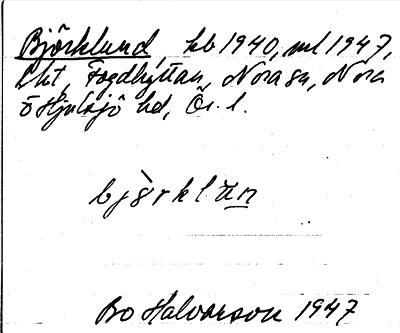 Björklund, hb 1940, ml 1947,
Lht, Fogdhyttan, Nora sn, Nora
o Hjulsjö hd, Ör. l.
björklun
Bo Halvarson 1947